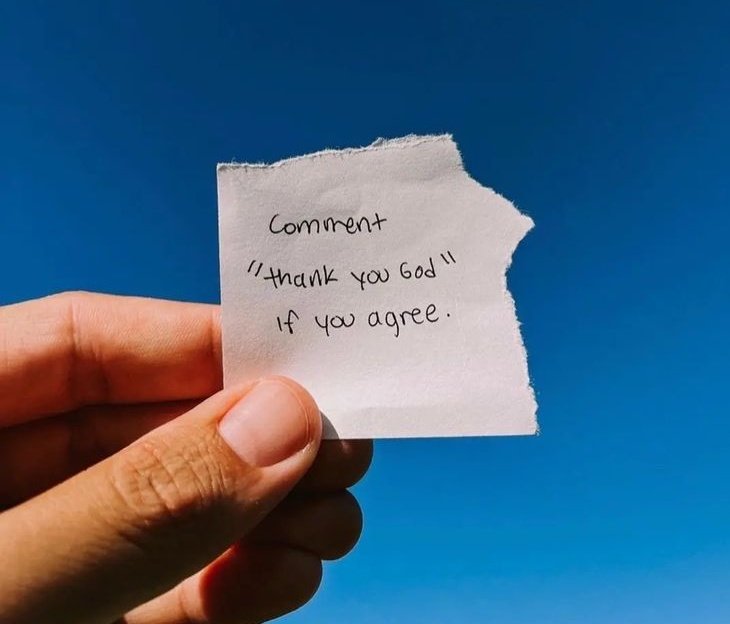 Comment
"thank you God"
if you agree.